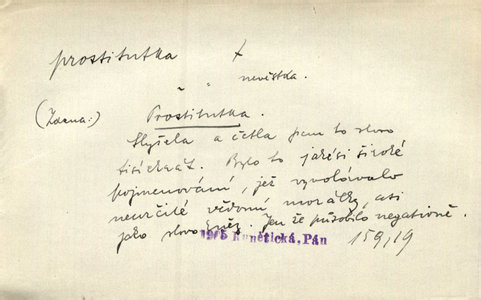 prostitutka X
nevěstka.
(Zdena:) Prostitutka.
Slyšela a četla jsem to slovo
tisíckrát. Bylo to jakési široké
pojmenování, jež vyvolávalo
neurčité vědomí morálky, asi
jako slovo . Jen že působilo negativně.
Kunětická, Pán 159,19